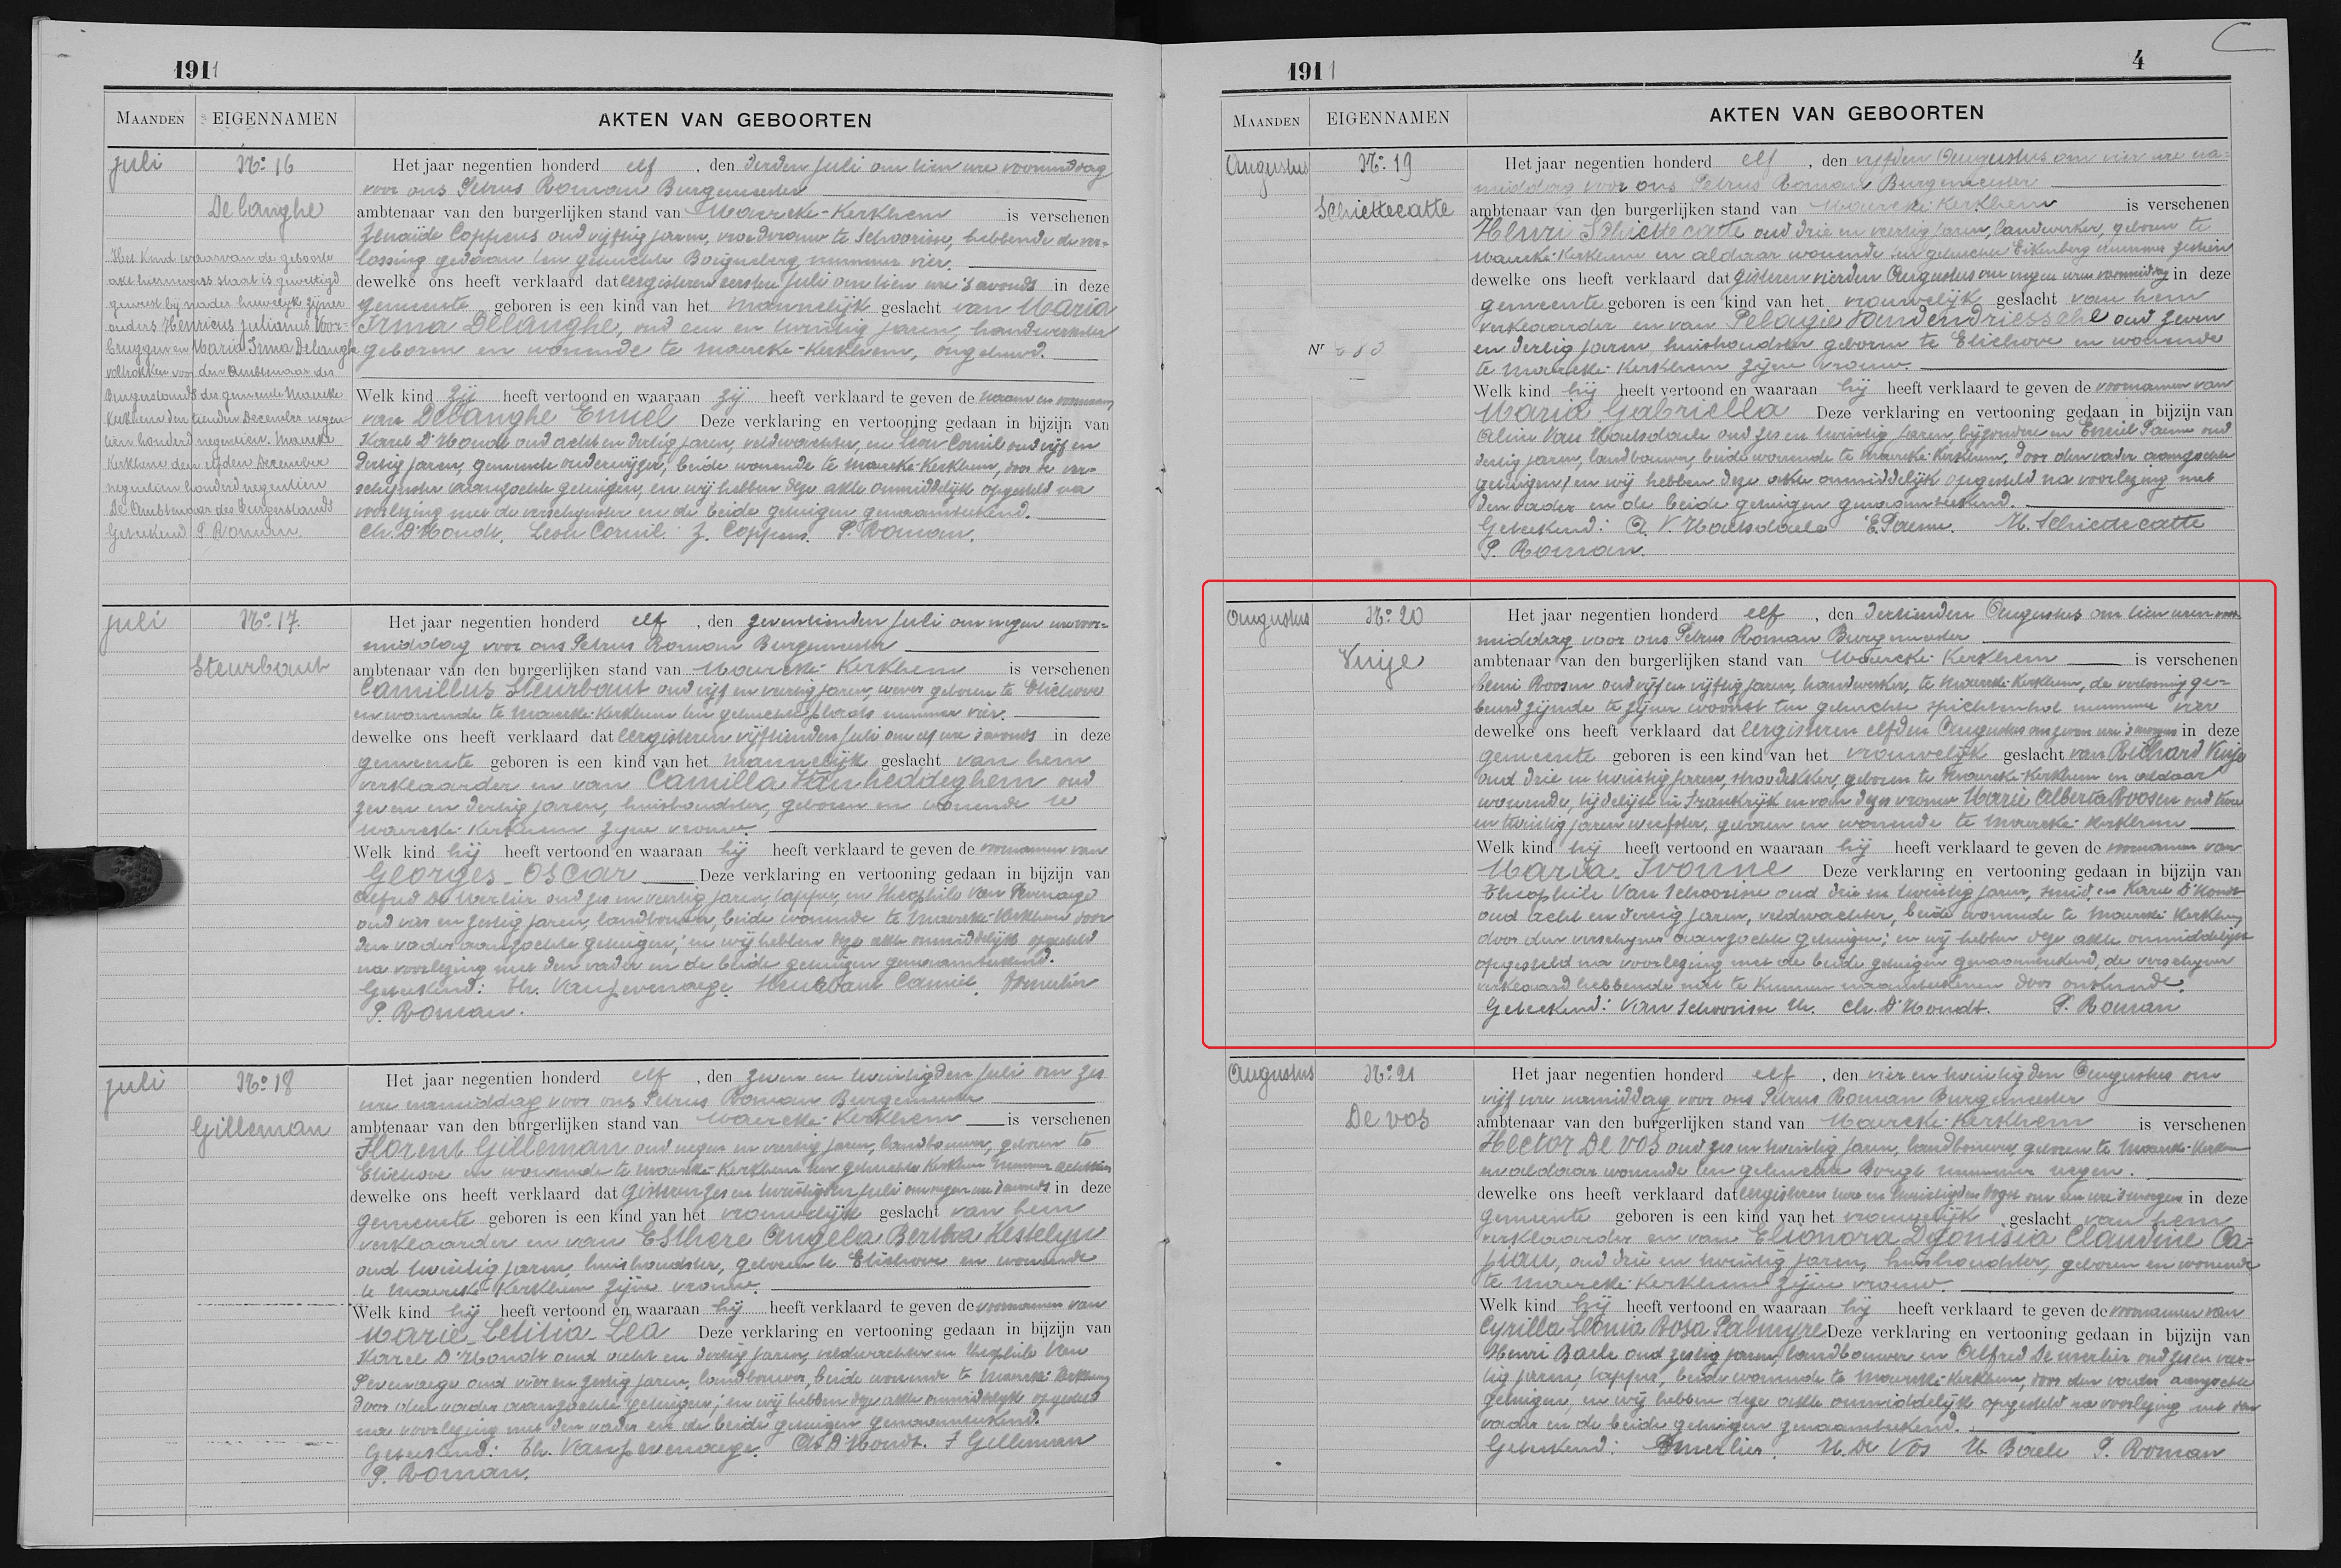 1911
MAANDEN EIGENNAMEN AKTEN VAN GEBOORTEN
juli
No 16
Delanghe
Het Kind waarvan de geboorte
akte hiernevens staat is gewettigd
geweest bij nader huwelijk zijner
ouders Henricus Julianus Voor-
bruggen en Maria Irma Delanghe
voltrokken voor den Ambtenaar des
Burgerstands der gemeente Maercke
Kerkhem den tienden December negen
tien honderd negentien. Maercke
Kerkhem den elfden December
negentien honderd negentien
De Ambtenaar des Burgerstands
Geteekend P. Roman.
Het jaar negentien honderd elf, den derden juli om tien ure voormiddag
voor ons Petrus Roman Burgemeester
ambtenaar van den burgerlijken stand van Maercke-Kerkhem is verschenen
Zenaïde Coppens oud vijftig jaren, vroedvrouw te Schoorisse, hebbende de ver-
lossing gedaan ten gehuchte Boigneberg nummer vier.
dewelke ons heeft verklaard dat eergisteren eersten juli om tien ure 's avonds in deze
gemeente geboren is een kind van het mannelijk geslacht van Maria
Irma Delanghe, oud een en twintig jaren, handwerkster
geboren en wonende te Maercke-Kerkhem, ongehuwd.
Welk kind zij heeft vertoond en waaraan zij heeft verklaard te geven de naam en voornaam
van Delanghe Emiel Deze verklaring en vertooning gedaan in bijzijn van
Karel D'Hondt oud acht en dertig jaren, veldwachter, en Leon Cornil oud vijf en
dertig jaren, gemeente onderwijzer, beide wonende te Maercke-Kerkhem, door de ver-
schijnster aangezochte getuigen, en wij hebben deze akte onmiddelijk opgesteld na
voorlezing met de verschijnster en de beide getuigen genaamteekend.
Ch. D'Hondt. Leon Cornil. Z. Coppens. P. Roman.
juli
No 17.
Steurbaut
Het jaar negentien honderd elf, den zeventienden juli om negen ure voor-
middag voor ons Petrus Roman Burgemeester
ambtenaar van den burgerlijken stand van Maercke-Kerkhem is verschenen
Camillus Steurbaut oud vijf en veertig jaren, wever geboren te Etichove
en wonende te Maercke-Kerkhem ten gehuchte plaats nummer vier.
dewelke ons heeft verklaard dat eergisteren vijftienden juli om elf ure 's avonds in deze
gemeente geboren is een kind van het mannelijk geslacht van hem
verklaarder en van Camilla Vanheddeghem oud
zeven en dertig jaren, huishoudster, geboren en wonende te
Maercke-Kerkhem zijne vrouw.
Welk kind hij heeft vertoond en waaraan hij heeft verklaard te geven de voornamen van
Georges-Oscar Deze verklaring en vertooning gedaan in bijzijn van
Alfred De Merlier oud zes en veertig jaren, tapper, en Theophile Van Pevenaege
oud vier en zestig jaren, landbouwer, beide wonende te Maercke-Kerkhem door
den vader aangezochte getuigen; en wij hebben deze akte onmiddelijk opgesteld
na voorlezing met den vader en de beide getuigen genaamteekend.
Geteekend: Th. Vanpevenaege. Steurbaut Camiel. Demerlier
P. Roman.
juli
No 18
Gilleman
Het jaar negentien honderd elf, den zeven en twintigden juli om zes
ure namiddag voor ons Petrus Roman Burgemeester
ambtenaar van den burgerlijken stand van Maercke-Kerkhem is verschenen
Florent Gilleman oud negen en veertig jaren, landbouwer, geboren te
Etichove en wonende te Maercke-Kerkhem ten gehuchte Kerkhem nummer achttien
dewelke ons heeft verklaard dat gisteren zes en twintigsten juli om negen ure 's avonds in deze
gemeente geboren is een kind van het vrouwelijk geslacht van hem
verklaarder en van Esthere Angela Bertha Kestelyn
oud twintig jaren, huishoudster, geboren te Etichove en wonende
te Maercke-Kerkhem zijne vrouw.
Welk kind hij heeft vertoond en waaraan hij heeft verklaard te geven de voornamen van
Marie-Letitia-Lea Deze verklaring en vertooning gedaan in bijzijn van
Karel D'Hondt oud acht en dertig jaren, veldwachter en Theophile Van
Pevenaege oud vier en zestig jaren, landbouwer, beide wonende te Maercke-Kerkhem
door den vader aangezochte getuigen; en wij hebben deze akte onmiddelijk opgesteld
na voorlezing met den vader en de beide getuigen genaamteekend.
Geteekend: Th. Vanpevenaege. Ch D'Hondt. F Gilleman
P. Roman.
1911 4
MAANDEN EIGENNAMEN AKTEN VAN GEBOORTEN
Augustus
No 19
Schiettecatte
Nr
Het jaar negentien honderd elf, den vijfden Augustus om vier ure na-
middag voor ons Petrus Roman Burgemeester
ambtenaar van den burgerlijken stand van Maercke-Kerkhem is verschenen
Henri Schiettecatte oud drie en veertig jaren, landwerker, geboren te
Maercke-Kerkhem en aldaar wonende ten gehuchte Eikenberg nummer
dewelke ons heeft verklaard dat gisteren vierden Augustus om negen uren voormiddag in deze
gemeente geboren is een kind van het vrouwelijk geslacht van hem
verklaarder en van Pelagie Vandendriessche oud zeven
en dertig jaren, huishoudster geboren te Etichove en wonende
te Maercke-Kerkhem zijne vrouw.
Welk kind hij heeft vertoond en waaraan hij heeft verklaard te geven de voornamen van
Maria Gabriella Deze verklaring en vertooning gedaan in bijzijn van
Alin Van Haelsdaele oud zes en twintig jaren, bijzondere en Emiel Paeme oud
dertig jaren, landbouwer, beide wonende te Maercke-Kerkhem, door den vader aangezochte
getuigen; en wij hebben deze akte onmiddelijk opgesteld na voorlezing met
den vader en de beide getuigen genaamteekend.
Geteekend: A. V. Haelsdaele E. Paeme. H. Schiettecatte
P. Roman.
Augustus
No 20
Vuije
Het jaar negentien honderd elf, den dertienden Augustus om tien uren voor-
middag voor ons Petrus Roman Burgemeester
ambtenaar van den burgerlijken stand van Maercke-Kerkhem is verschenen
Remi Roosen oud vijf en vijftig jaren, handwerker, te Maercke-Kerkhem, de verlossing ge-
beurd zijnde te zijner woonst ten gehuchte spichtenhol nummer vier
dewelke ons heeft verklaard dat eergisteren elfden Augustus om zeven ure 's morgens in deze
gemeente geboren is een kind van het vrouwelijk geslacht van Richard Vuije
oud drie en twintig jaren, stroodekker, geboren te Maercke-Kerkhem en aldaar
wonende, tijdelijk in Frankrijk en van dezes vrouw Marie Alberta Roosen oud twee
en twintig jaren weefster, geboren en wonende te Maercke-Kerkhem
Welk kind hij heeft vertoond en waaraan hij heeft verklaard te geven de voornamen van
Maria-Ivonne Deze verklaring en vertooning gedaan in bijzijn van
Theophile Van Schoorisse oud drie en twintig jaren, smid, en Karel D'Hondt
oud acht en dertig jaren, veldwachter, beide wonende te Maercke-Kerkhem
door den verschijner aangezochte getuigen; en wij hebben deze akte onmiddelijk
opgesteld na voorlezing met de beide getuigen genaamteekend, de verschijner
verklaard hebbende niet te kunnen naamteekenen door onkunde.
Geteekend: Van Schoorisse Th. Ch. D'Hondt. P. Roman
Augustus
No 21
De Vos
Het jaar negentien honderd elf, den vier en twintigden Augustus om
vijf ure namiddag voor ons Petrus Roman Burgemeester
ambtenaar van den burgerlijken stand van Maercke-Kerkhem is verschenen
Hector De Vos oud zes en twintig jaren, landbouwer, geboren te Maercke-Kerkem
en aldaar wonende ten gehuchte Borgt nummer negen.
dewelke ons heeft verklaard dat eergisteren twee en twintigsten Oogst om een ure 's morgens in deze
gemeente geboren is een kind van het vrouwelijk geslacht van hem
verklaarder en van Elionora Dyonisia Claudine Ca-
piau, oud drie en twintig jaren, huishoudster, geboren en wonende
te Maercke-Kerkhem zijne vrouw.
Welk kind hij heeft vertoond en waaraan hij heeft verklaard te geven de voornamen van
Cyrilla Leonia Rosa Palmyre Deze verklaring en vertooning gedaan in bijzijn van
Henri Baele oud zestig jaren, landbouwer en Alfred De Merlier oud zes en veer-
tig jaren, tapper, beide wonende te Maercke-Kerkhem, door den vader aangezochte
getuigen, en wij hebben deze akte onmiddelijk opgesteld na voorlezing met den
vader en de beide getuigen genaamteekend.
Geteekend: Demerlier. H. De Vos H Baele P. Roman